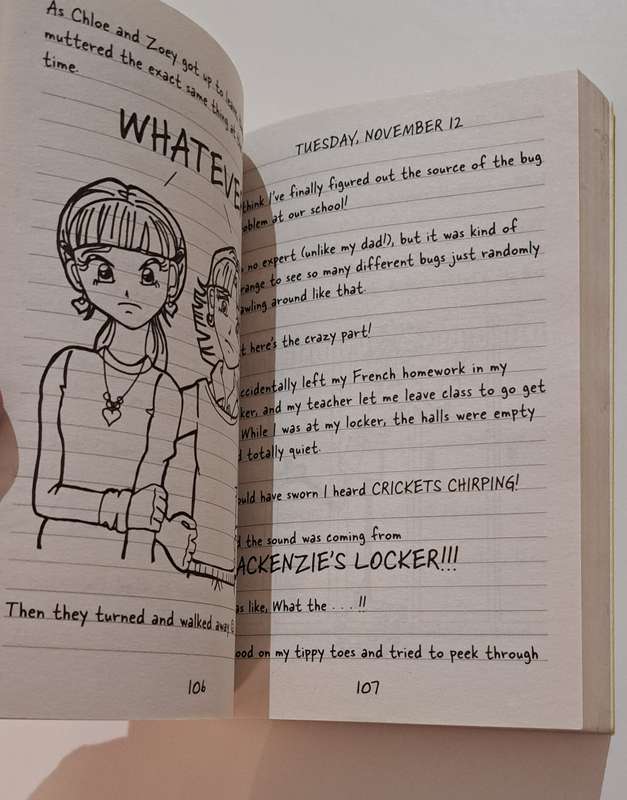 As Chloe and Zoey got up to leave, they
muttered the exact same thing at the
time.
WHATEVE
Then they turned and walked away
106
TUESDAY, NOVEMBER 12
think I've finally figured out the source of the bug
oblem at our school!
no expert (unlike my dad!), but it was kind of
range to see so many different bugs just randomly
awling around like that.
t here's the crazy part!
ccidentally left my French homework in my
ker, and my teacher let me leave class to go get
While I was at my locker, the halls were empty
d totally quiet.
ould have sworn I heard CRICKETS CHIRPING!
d the sound was coming from
ACKENZIE'S LOCKER!!!
as like, What the . . . !!
ood on my tippy toes and tried to peek through
107